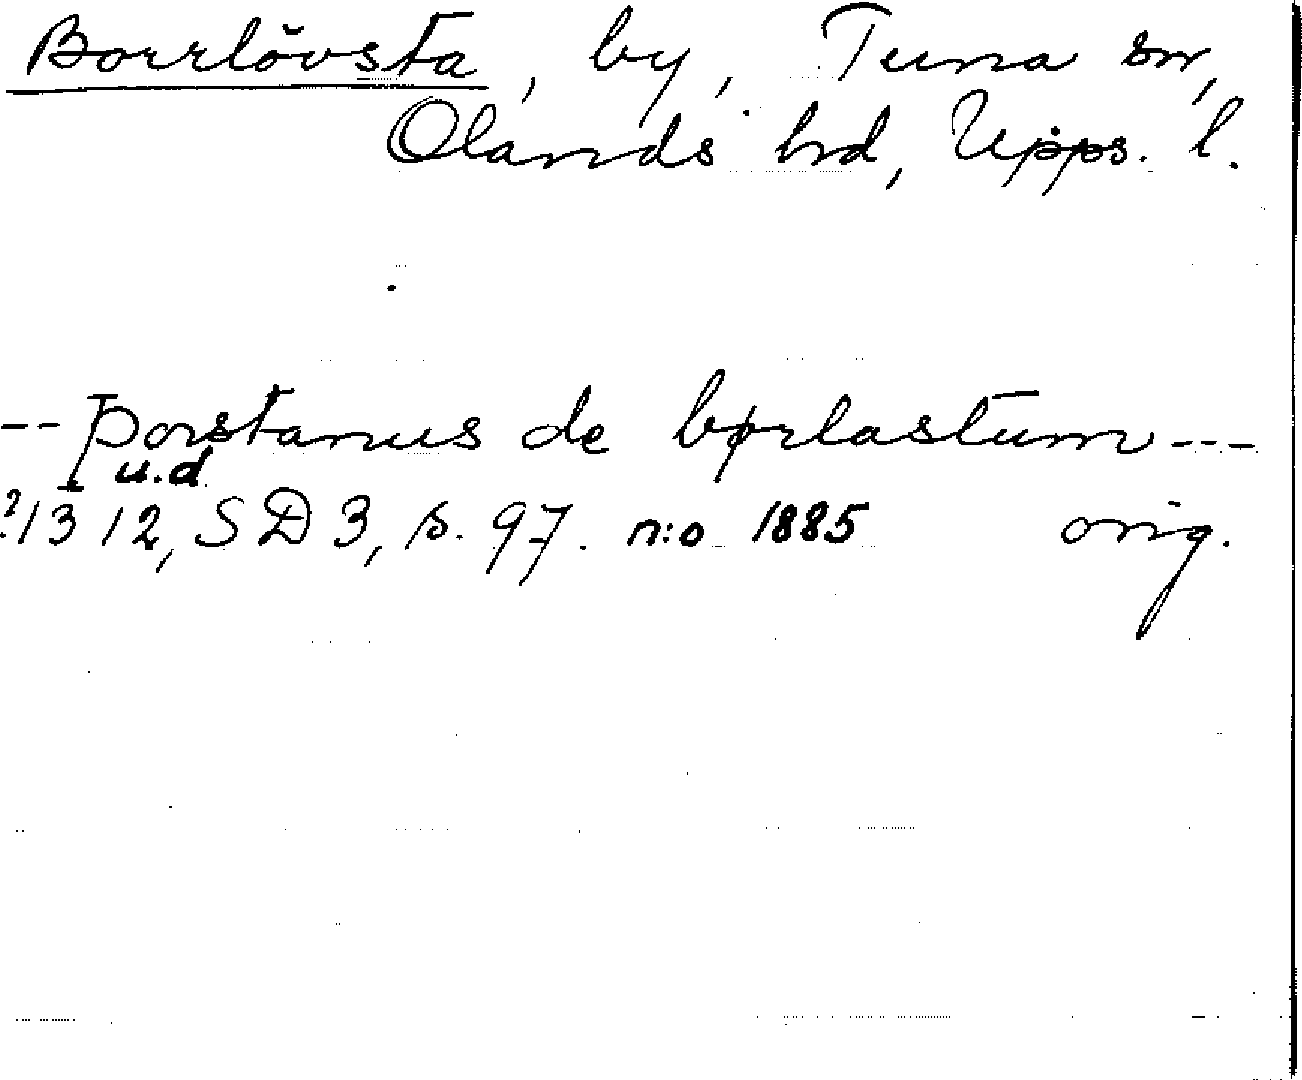 Borrlövsta, by, Tuna sn,
Olands hrd, Upps. l.
-- Þorstanus de børlastum ---
u.d.
?1312, SD 3, s. 97. n:o 1885 orig.